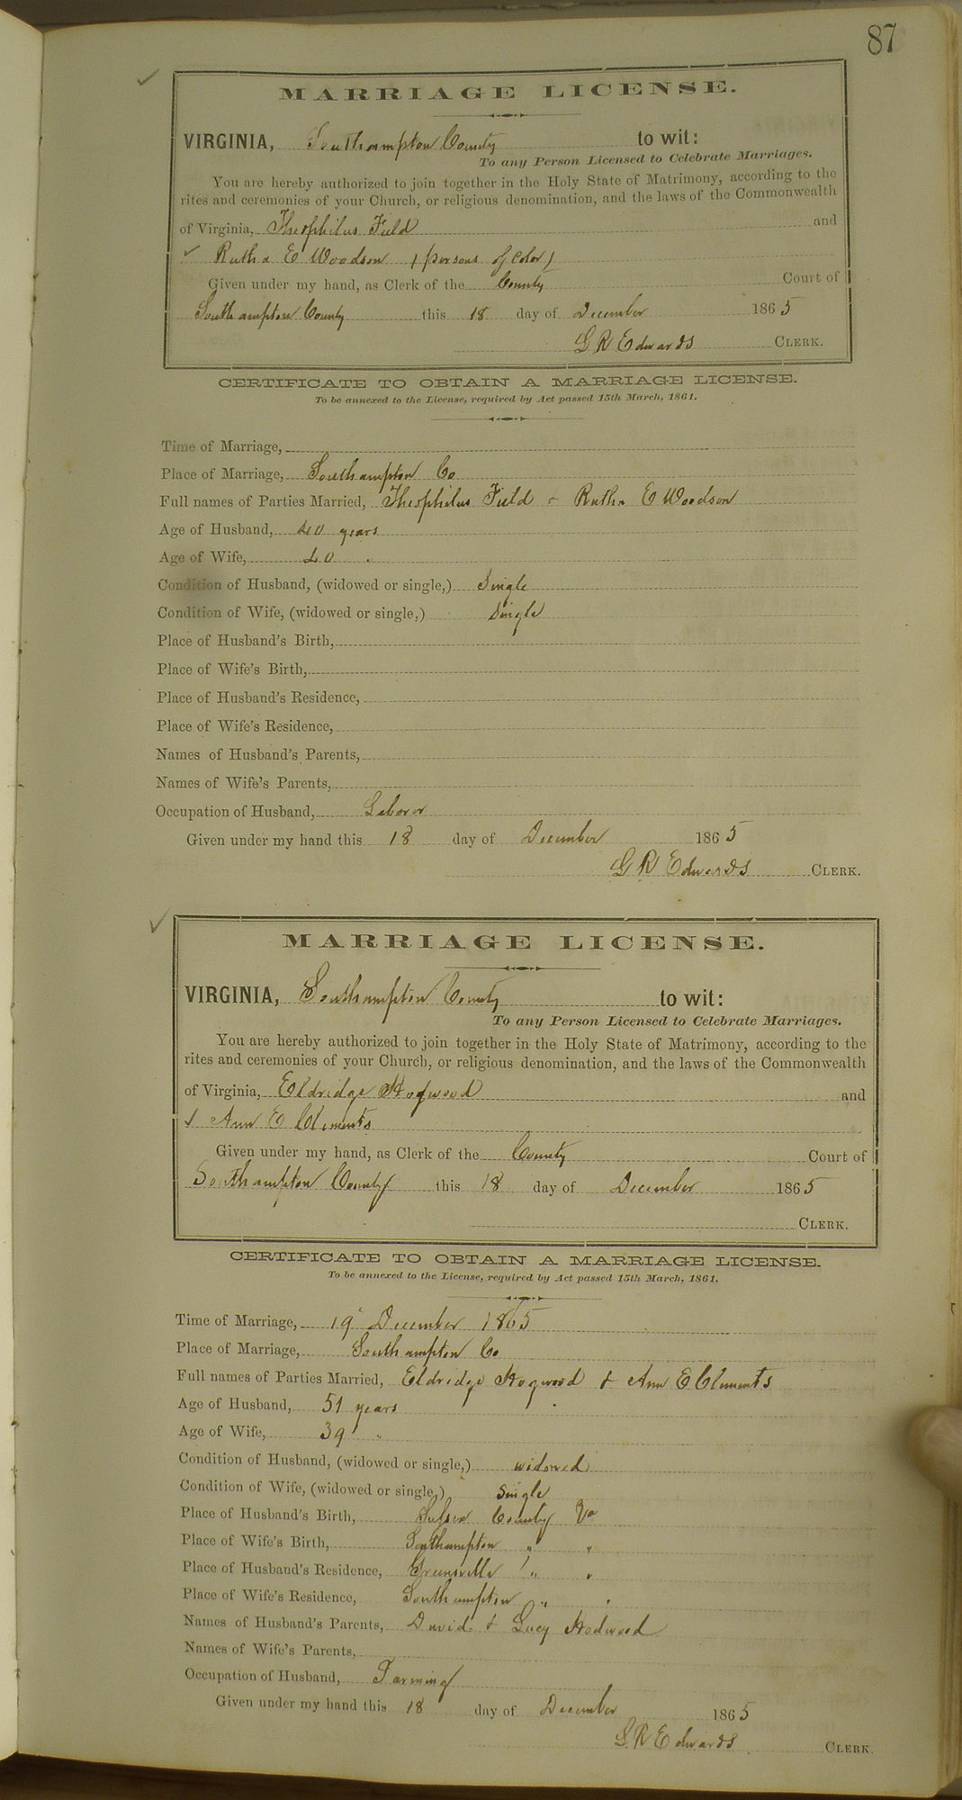 87
MARRIAGE LICENSE.
VIRGINIA, Southampton County to wit:
To any Person Licensed to Celebrate Marriages.
You are hereby authorized to join together in the Holy State of Matrimony, according to the
rites and ceremonies of your Church, or religious denomination, and the laws of the Commonwealth
of Virginia, Theophilus Field and
Rutha E Woodson (persons of Color)
Given under my hand, as Clerk of the County Court of
Southampton County this 18 day of December 1865
G R Edwards CLERK.
CERTIFICATE TO OBTAIN A MARRIAGE LICENSE.
To be annexed to the License, required by Act passed 15th March, 1861.
Time of Marriage,
Place of Marriage, Southampton Co
Full names of Parties Married, Theophilus Field & Rutha E Woodson
Age of Husband, 40 years
Age of Wife, 40 "
Condition of Husband, (widowed or single,) Single
Condition of Wife, (widowed or single,) Single
Place of Husband's Birth,
Place of Wife's Birth,
Place of Husband's Residence,
Place of Wife's Residence,
Names of Husband's Parents,
Names of Wife's Parents,
Occupation of Husband, Laboror
Given under my hand this 18 day of December 1865
G R Edwards CLERK.
MARRIAGE LICENSE.
VIRGINIA, Southampton County to wit:
To any Person Licensed to Celebrate Marriages.
You are hereby authorized to join together in the Holy State of Matrimony, according to the
rites and ceremonies of your Church, or religious denomination, and the laws of the Commonwealth
of Virginia, Eldridge Hogwood and
Ann E Clements
Given under my hand, as Clerk of the County Court of
Southampton County this 18 day of December 1865
CLERK.
CERTIFICATE TO OBTAIN A MARRIAGE LICENSE.
To be annexed to the License, required by Act passed 15th March, 1861.
Time of Marriage, 19 December 1865
Place of Marriage, Southampton Co
Full names of Parties Married, Eldridge Hogwood & Ann E Clements
Age of Husband, 51 years
Age of Wife, 39 "
Condition of Husband, (widowed or single,) widowed
Condition of Wife, (widowed or single,) Single
Place of Husband's Birth, Sussex County Va
Place of Wife's Birth, Southampton " "
Place of Husband's Residence, Greensville " "
Place of Wife's Residence, Southampton " "
Names of Husband's Parents, David & Lucy Hodwood
Names of Wife's Parents,
Occupation of Husband, Farming
Given under my hand this 18 day of December 1865
G R Edwards CLERK.